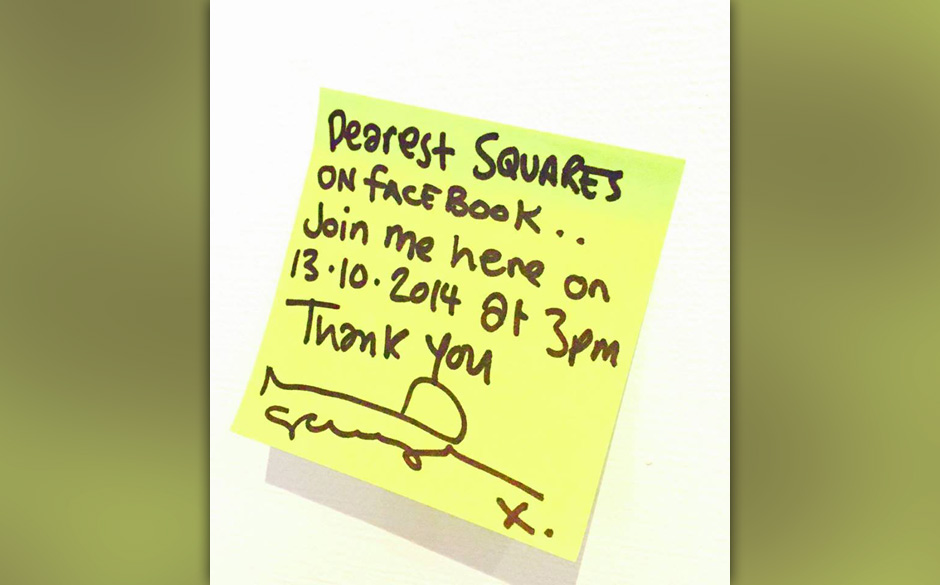 Dearest SQUARES
ON FACEBOOK..
Join me here on
13.10.2014 at 3pm
Thank you
x.